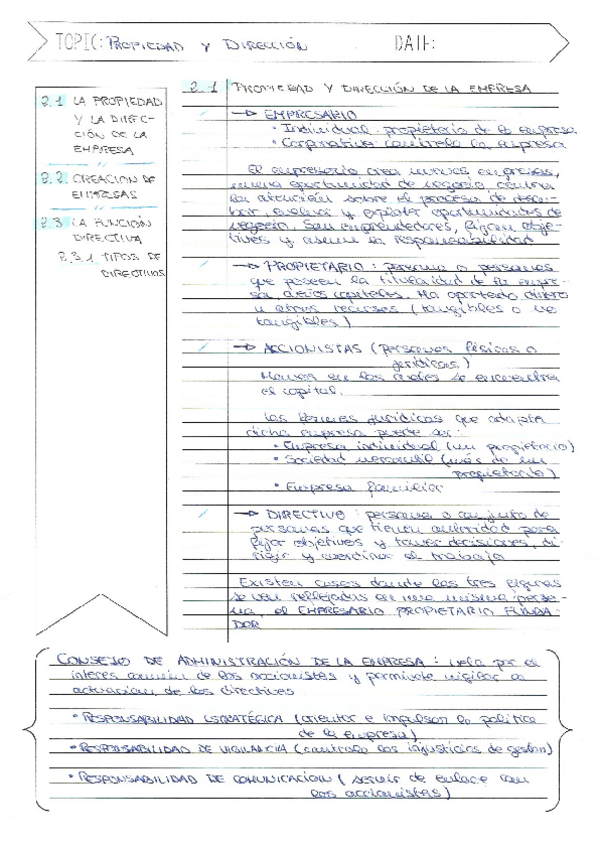 TOPIC: PROPIEDAD Y DIRECCIÓN
DATE:
2.1 LA PROPIEDAD
Y LA DIREC-
CIÓN DE LA
EMPRESA
2.2. CREACION DE
EMPRESAS
2.3 LA FUNCIÓN
DIRECTIVA
2.3.1 TIPOS DE
DIRECTIVOS
2.1 PROPIEDAD Y DIRECCIÓN DE LA EMPRESA
→ EMPRESARIO
• Individual propietario de la empresa
• Corporativo controla la empresa
El empresario crea nuevas empresas,
oportunidad de negocio, centra
su atención sobre el proceso de descu-
brir, evaluar y explotar oportunidades de
negocio. Son emprendedores, fijan obje-
tivos y asumen la responsabilidad
→ PROPIETARIO: persona o personas
que poseen la titularidad de la empre-
sa, capitales. Ha aportado dinero
u otros recursos (tangibles o no
tangibles)
→ ACCIONISTAS (personas físicas o
jurídicas)
en los cuales se encuentra
el capital.
Las formas jurídicas que adopta
dicha empresa puede ser:
• Empresa individual (un propietario)
• Sociedad mercantil (más de un
propietario)
• Empresa familiar
→ DIRECTIVO: persona o conjunto de
personas que tienen autoridad para
fijar objetivos y tomar decisiones, di-
rigir y coordinar el trabajo
Existen casos donde las tres figuras
se ven reflejadas en una misma perso-
na, el EMPRESARIO PROPIETARIO FUNDA-
DOR
CONSEJO DE ADMINISTRACIÓN DE LA EMPRESA: vela por el
interes común de los accionistas y vigilar la
actuacion de los directivos
• RESPONSABILIDAD ESTRATÉGICA (orientar e impulsar la politica
de la empresa)
• RESPONSABILIDAD DE VIGILANCIA (controla las injusticias de gestion)
• RESPONSABILIDAD DE COMUNICACION (servir de enlace con
los accionistas)